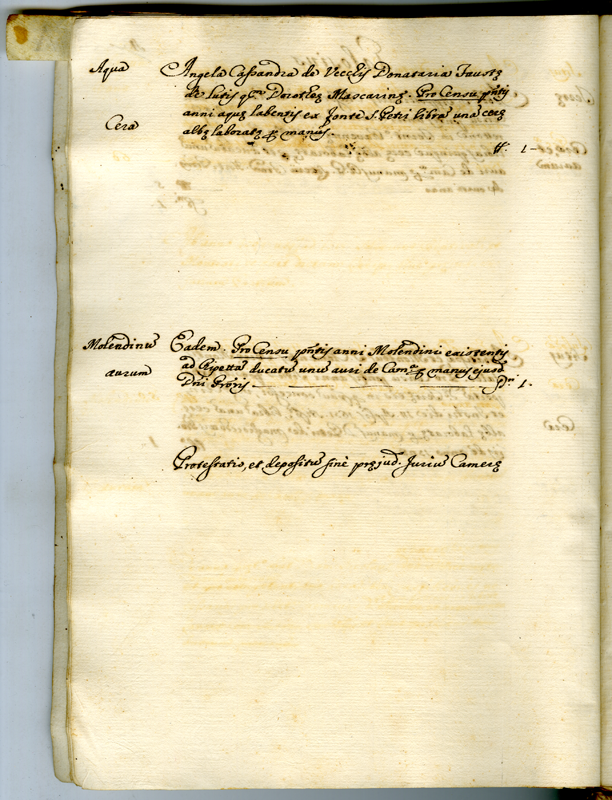 Aqua
Angela Cassandra de Vecchijs Donataria Faustę
de Lutis qm Dorotheę Mascarinę. Pro Censu pn̄tis
anni aquę labentis ex fonte S. Petri libra una cerę
Cera
albę laboratę p manus
tt: 1–
Molendinū
Eadem. Pro Censu pn̄tis anni Molendini existentis
ad ducatū unū auri de Camᵃ p manus ejusd
aurum
Dn̄i Proris — 1.
Protestatio, et depositū sine pręjud. Juriū Camerę